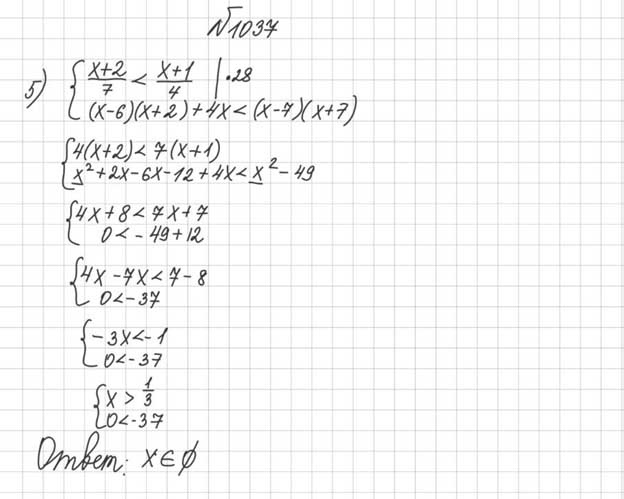 №1037
5) { (x+2)/7 < (x+1)/4 | ·28
(x-6)(x+2)+4x<(x-7)(x+7)
{ 4(x+2)<7(x+1)
x²+2x-6x-12+4x<x²-49
{ 4x+8<7x+7
0<-49+12
{ 4x-7x<7-8
0<-37
{ -3x<-1
0<-37
{ x > 1/3
0<-37
Ответ: x∈∅